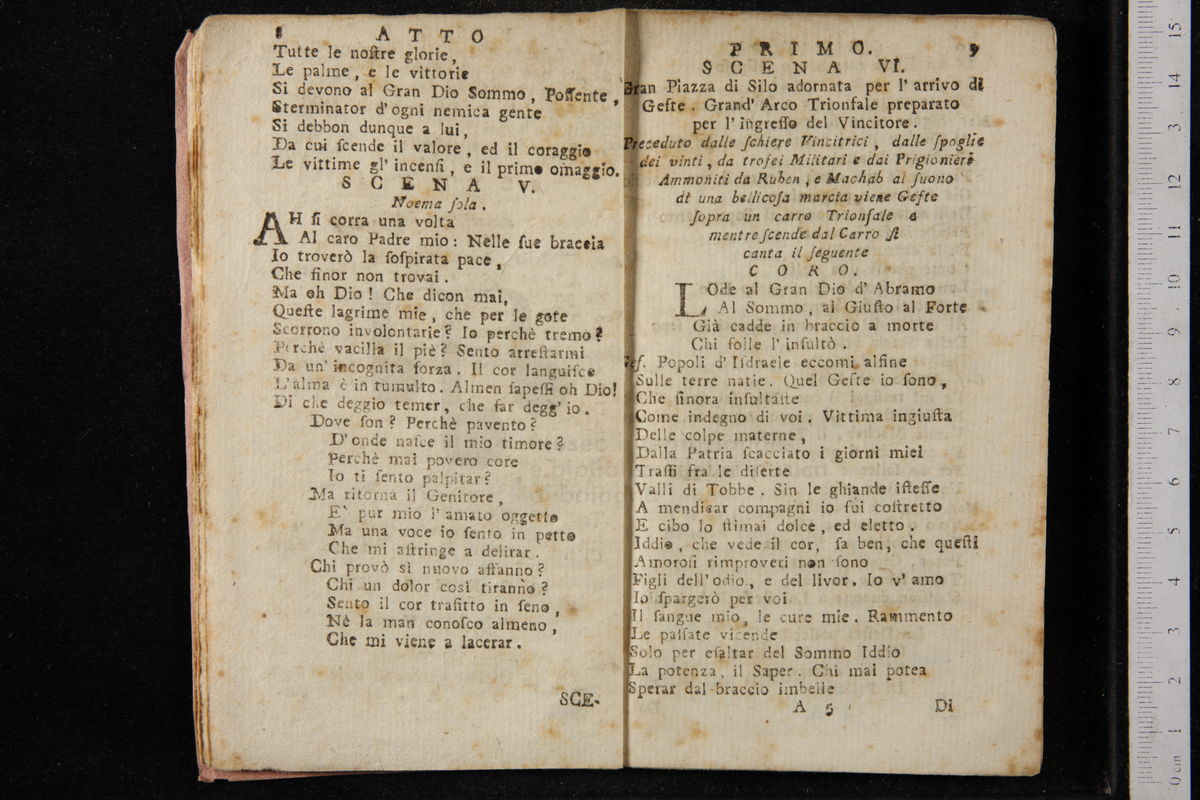 8 ATTO
Tutte le noſtre glorie,
Le palme, e le vittorie
Si devono al Gran Dio Sommo, Poſſente,
Sterminator d'ogni nemica gente
Si debbon dunque a lui,
Da cui ſcende il valore, ed il coraggio
Le vittime gl' incenſi, e il primo omaggio.
SCENA V.
Noema ſola.
AH ſi corra una volta
Al caro Padre mio: Nelle ſue braccia
Io troverò la ſoſpirata pace,
Che finor non trovai.
Ma oh Dio! Che dicon mai,
Queſte lagrime mie, che per le gote
Scorrono involontarie? Io perchè tremo?
Perchè vacilla il piè? Sento arreſtarmi
Da un' incognita forza. Il cor languiſce
L'alma è in tumulto. Almen ſapeſſi oh Dio!
Di che deggio temer, che far degg' io.
Dove ſon? Perchè pavento?
D'onde naſce il mio timore?
Perchè mai povero core
Io ti ſento palpitar?
Ma ritorna il Genitore,
E` pur mio l' amato oggetto
Ma una voce io ſento in petto
Che mi aſtringe a delirar.
Chi provò sì nuovo affanno?
Chi un dolor così tiranno?
Sento il cor trafitto in ſeno,
Nè la man conoſco almeno,
Che mi viene a lacerar.
SCE-
PRIMO. 9
SCENA VI.
Gran Piazza di Silo adornata per l' arrivo di
Gefte. Grand' Arco Trionfale preparato
per l' ingreſſo del Vincitore.
Preceduto dalle ſchiere Vincitrici, dalle ſpoglie
dei vinti, da trofei Militari e dai Prigionieri
Ammoniti da Ruben, e Machab al ſuono
di una bellicoſa marcia viene Gefte
ſopra un carro Trionfale e
mentre ſcende dal Carro ſi
canta il ſeguente
CORO.
LOde al Gran Dio d' Abramo
Al Sommo, al Giuſto al Forte
Già cadde in braccio a morte
Chi folle l' inſultò.
Gef. Popoli d' Iſdraele eccomi alfine
Sulle terre natie. Quel Gefte io ſono,
Che finora inſultaſte
Come indegno di voi. Vittima ingiuſta
Delle colpe materne,
Dalla Patria ſcacciato i giorni miei
Traſſi fra le diſerte
Valli di Tobbe. Sin le ghiande iſteſſe
A mendicar compagni io fui coſtretto
E cibo lo ſtimai dolce, ed eletto.
Iddio, che vede il cor, ſa ben, che queſti
Amoroſi rimproveri non ſono
Figli dell' odio, e del livor. Io v' amo
Io ſpargerò per voi
Il ſangue mio, le cure mie. Rammento
Le paſſate vicende
Solo per eſaltar del Sommo Iddio
La potenza, il Saper. Chi mai potea
Sperar dal braccio imbelle
A 5 Di